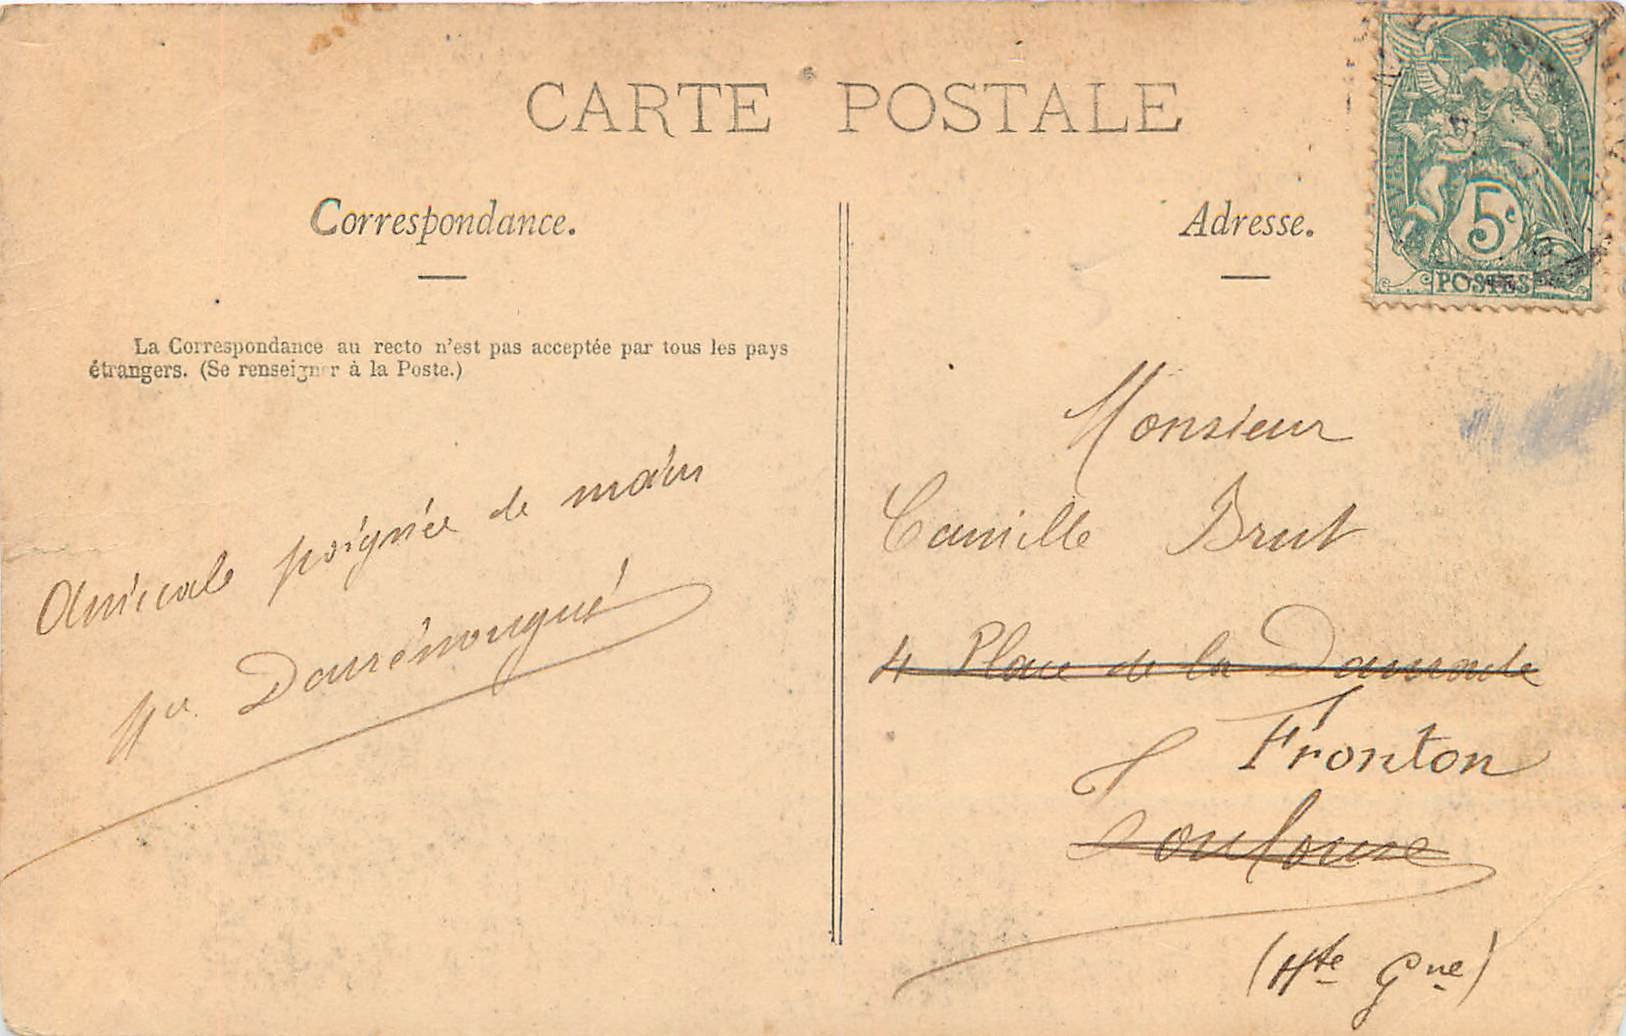 CARTE POSTALE
Correspondance.
La Correspondance au recto n'est pas acceptée par tous les pays
étrangers. (Se renseigner à la Poste.)
Amicale poignée de main
Adresse.
5c
POSTES
Monsieur
Camille Brut
4 Place de la Daurade
Fronton
Toulouse
(Hte Gne)